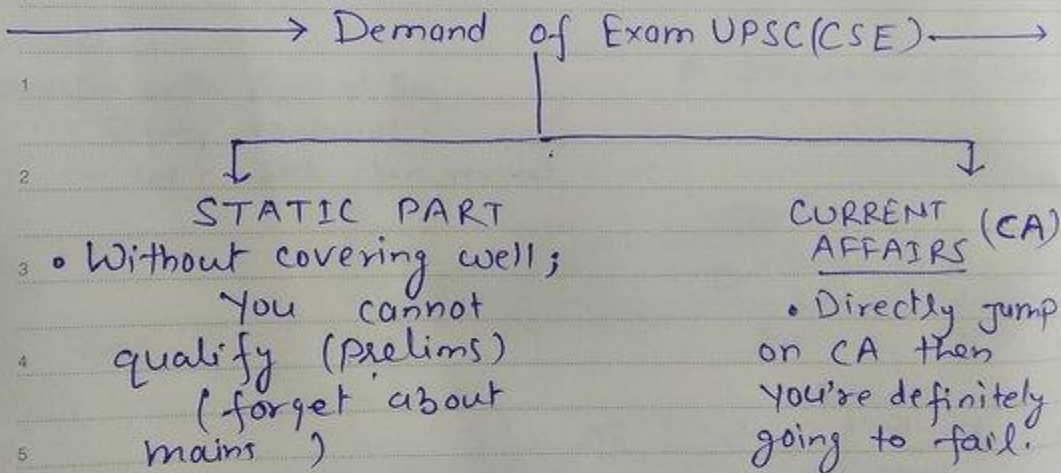 Demand of Exam UPSC(CSE)
1
2
STATIC PART
3 • Without covering well;
you cannot
4 qualify (prelims)
(forget about
5 mains )
CURRENT (CA)
AFFAIRS
• Directly jump
on CA then
you're definitely
going to fail.